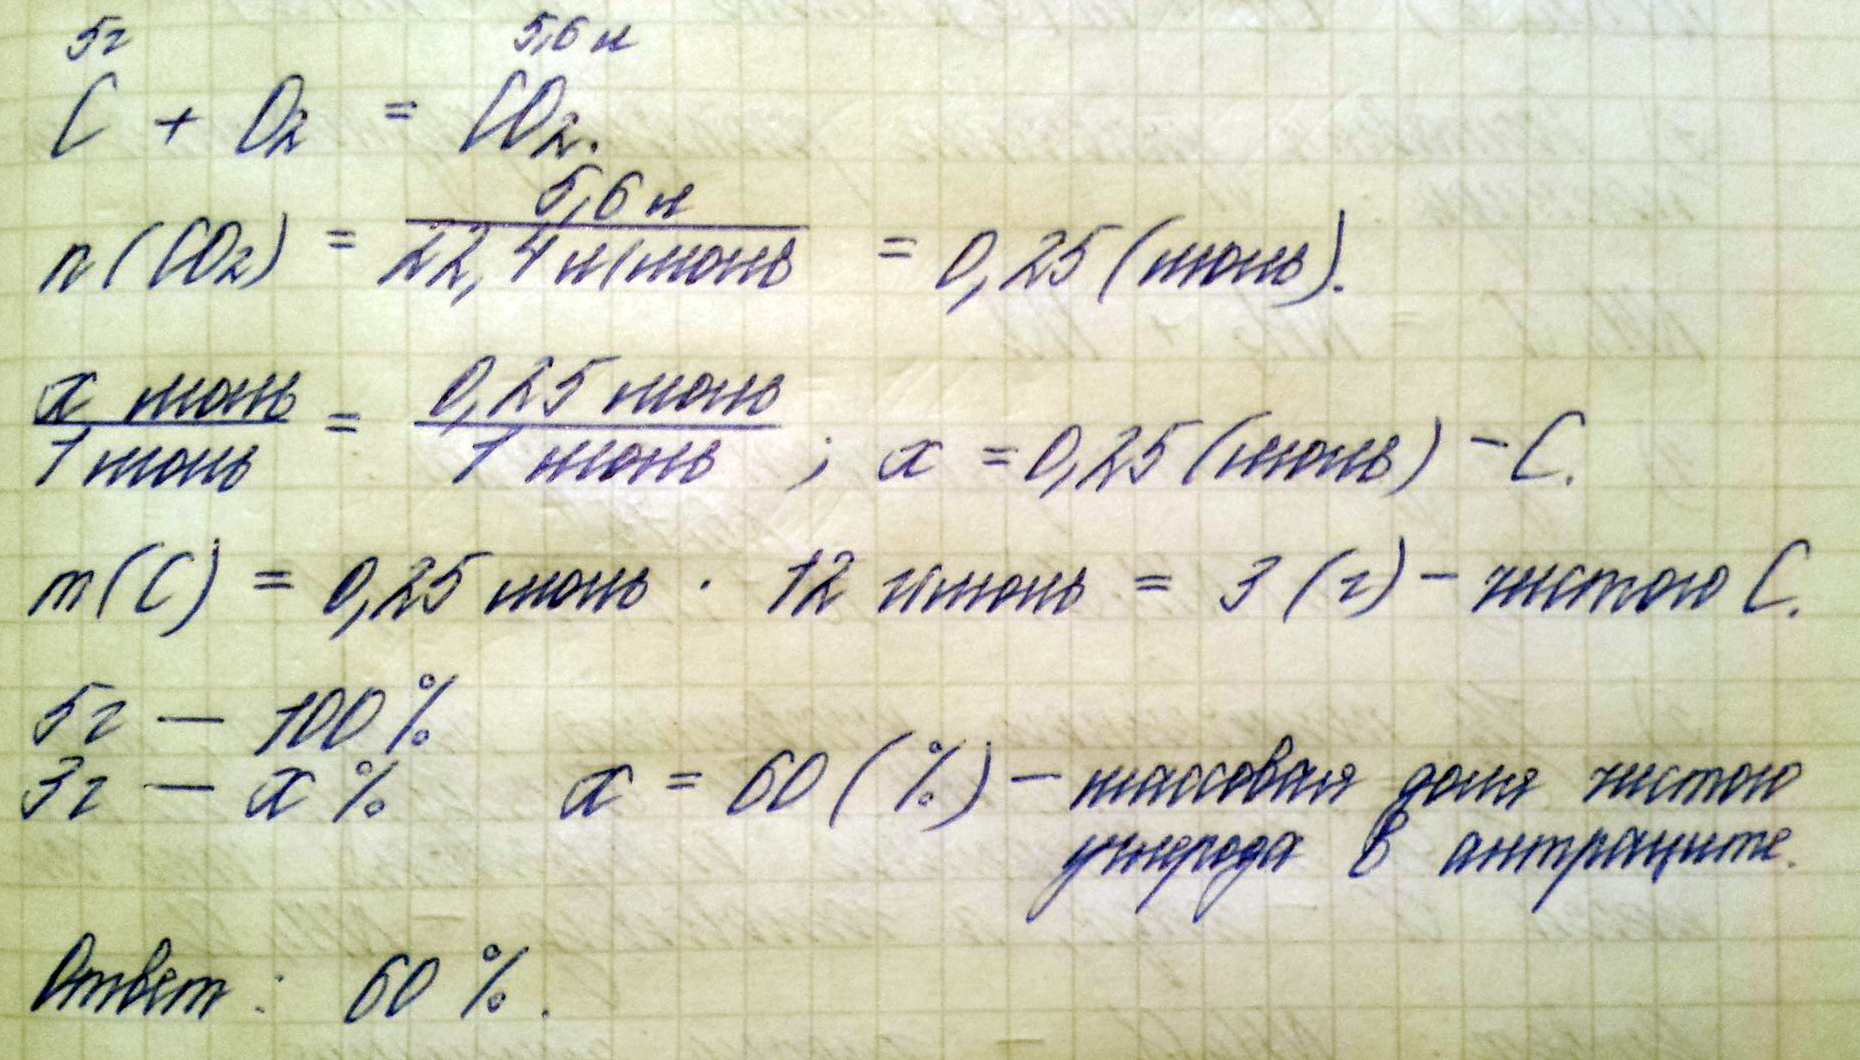 5г 5,6 л
C + O₂ = CO₂.
n(CO₂) = 5,6 л / 22,4 л/моль = 0,25 (моль).
x моль / 1 моль = 0,25 моль / 1 моль ; x = 0,25 (моль) - C.
m(C) = 0,25 моль · 12 г/моль = 3 (г) - чистого C.
5г — 100%
3г — x% x = 60 (%) - массовая доля чистого
углерода в антраците.
Ответ: 60 %.